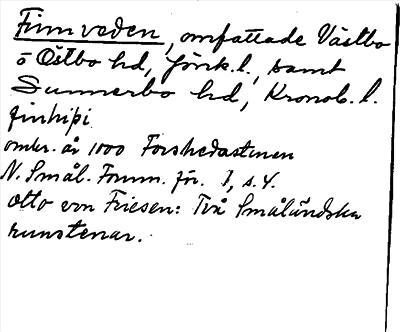 Finnveden, omfattade Västbo
o Östbo hd, Jönk. l., samt
Sunnerbo hd, Kronob. l.
finhiþi
omkr. år 1000 Forshedastenen
N. Smål. Fornm. för. I, s. 4.
Otto von Friesen: Två Småländska
runstenar.